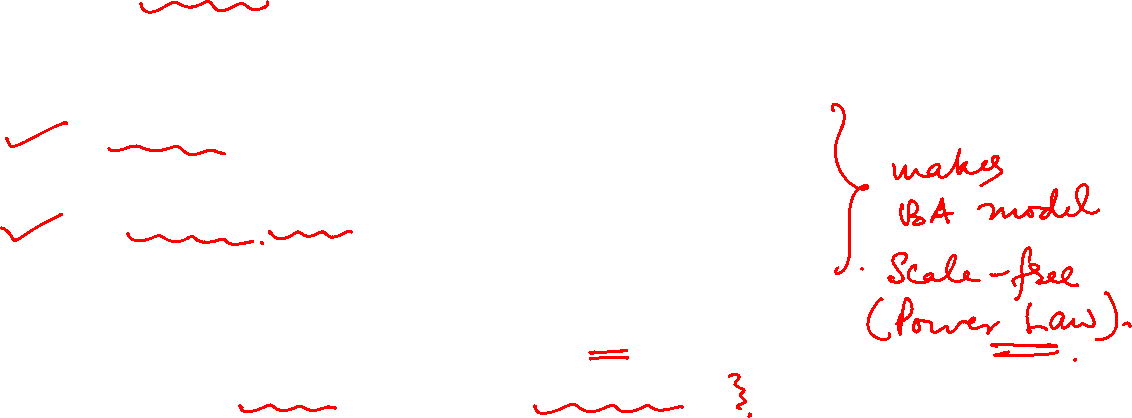 makes
BA model
Scale-free
(Power Law).